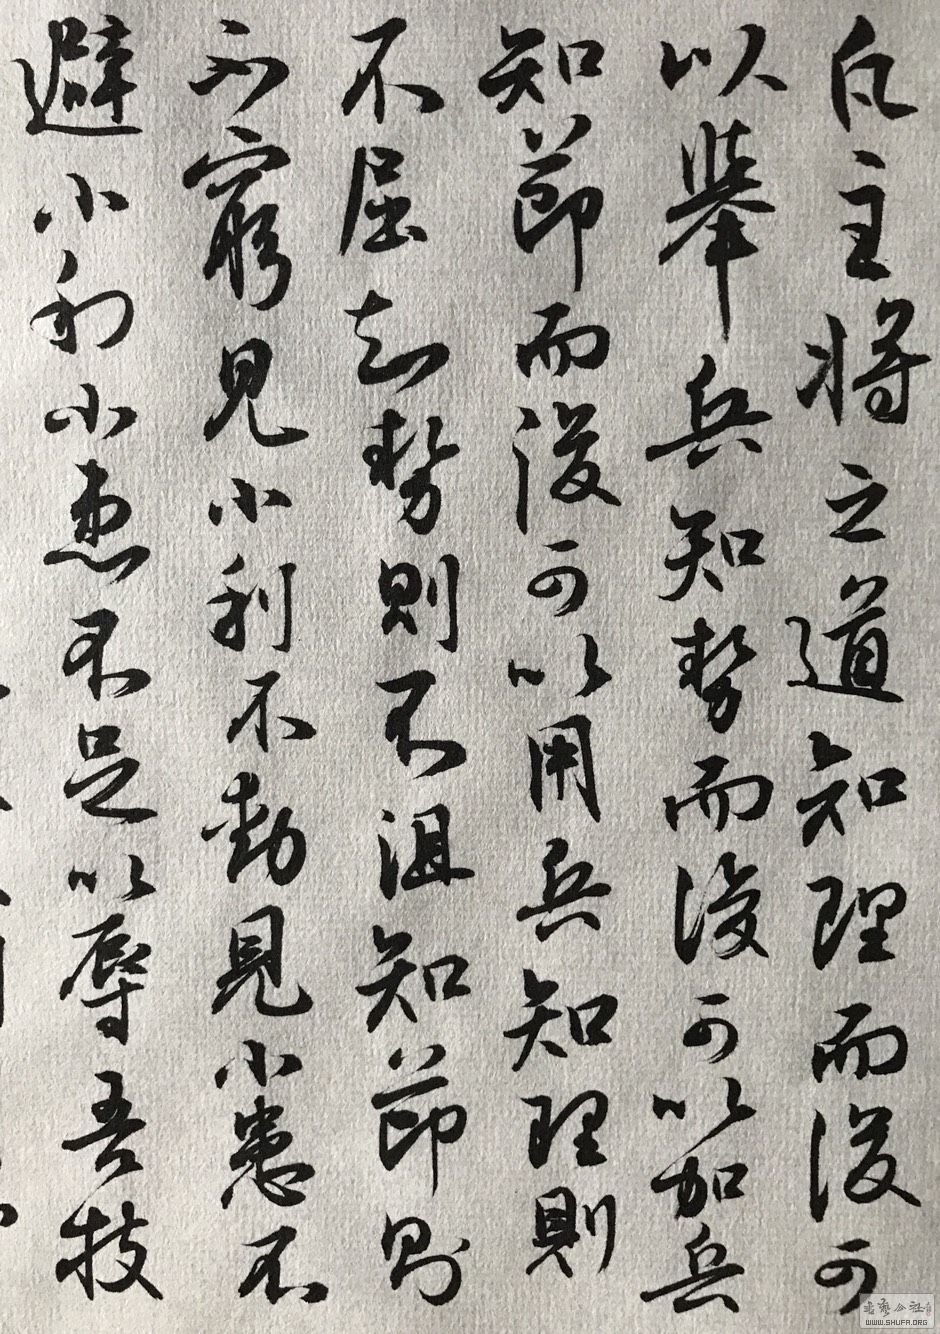 凡主将之道知理而後可
以舉兵知勢而後可以加兵
知節而後可以用兵知理則
不屈知勢則不沮知節則
不窮見小利不動見小患不
避小利小患不足以辱吾技
WWW.SHUFA.ORG